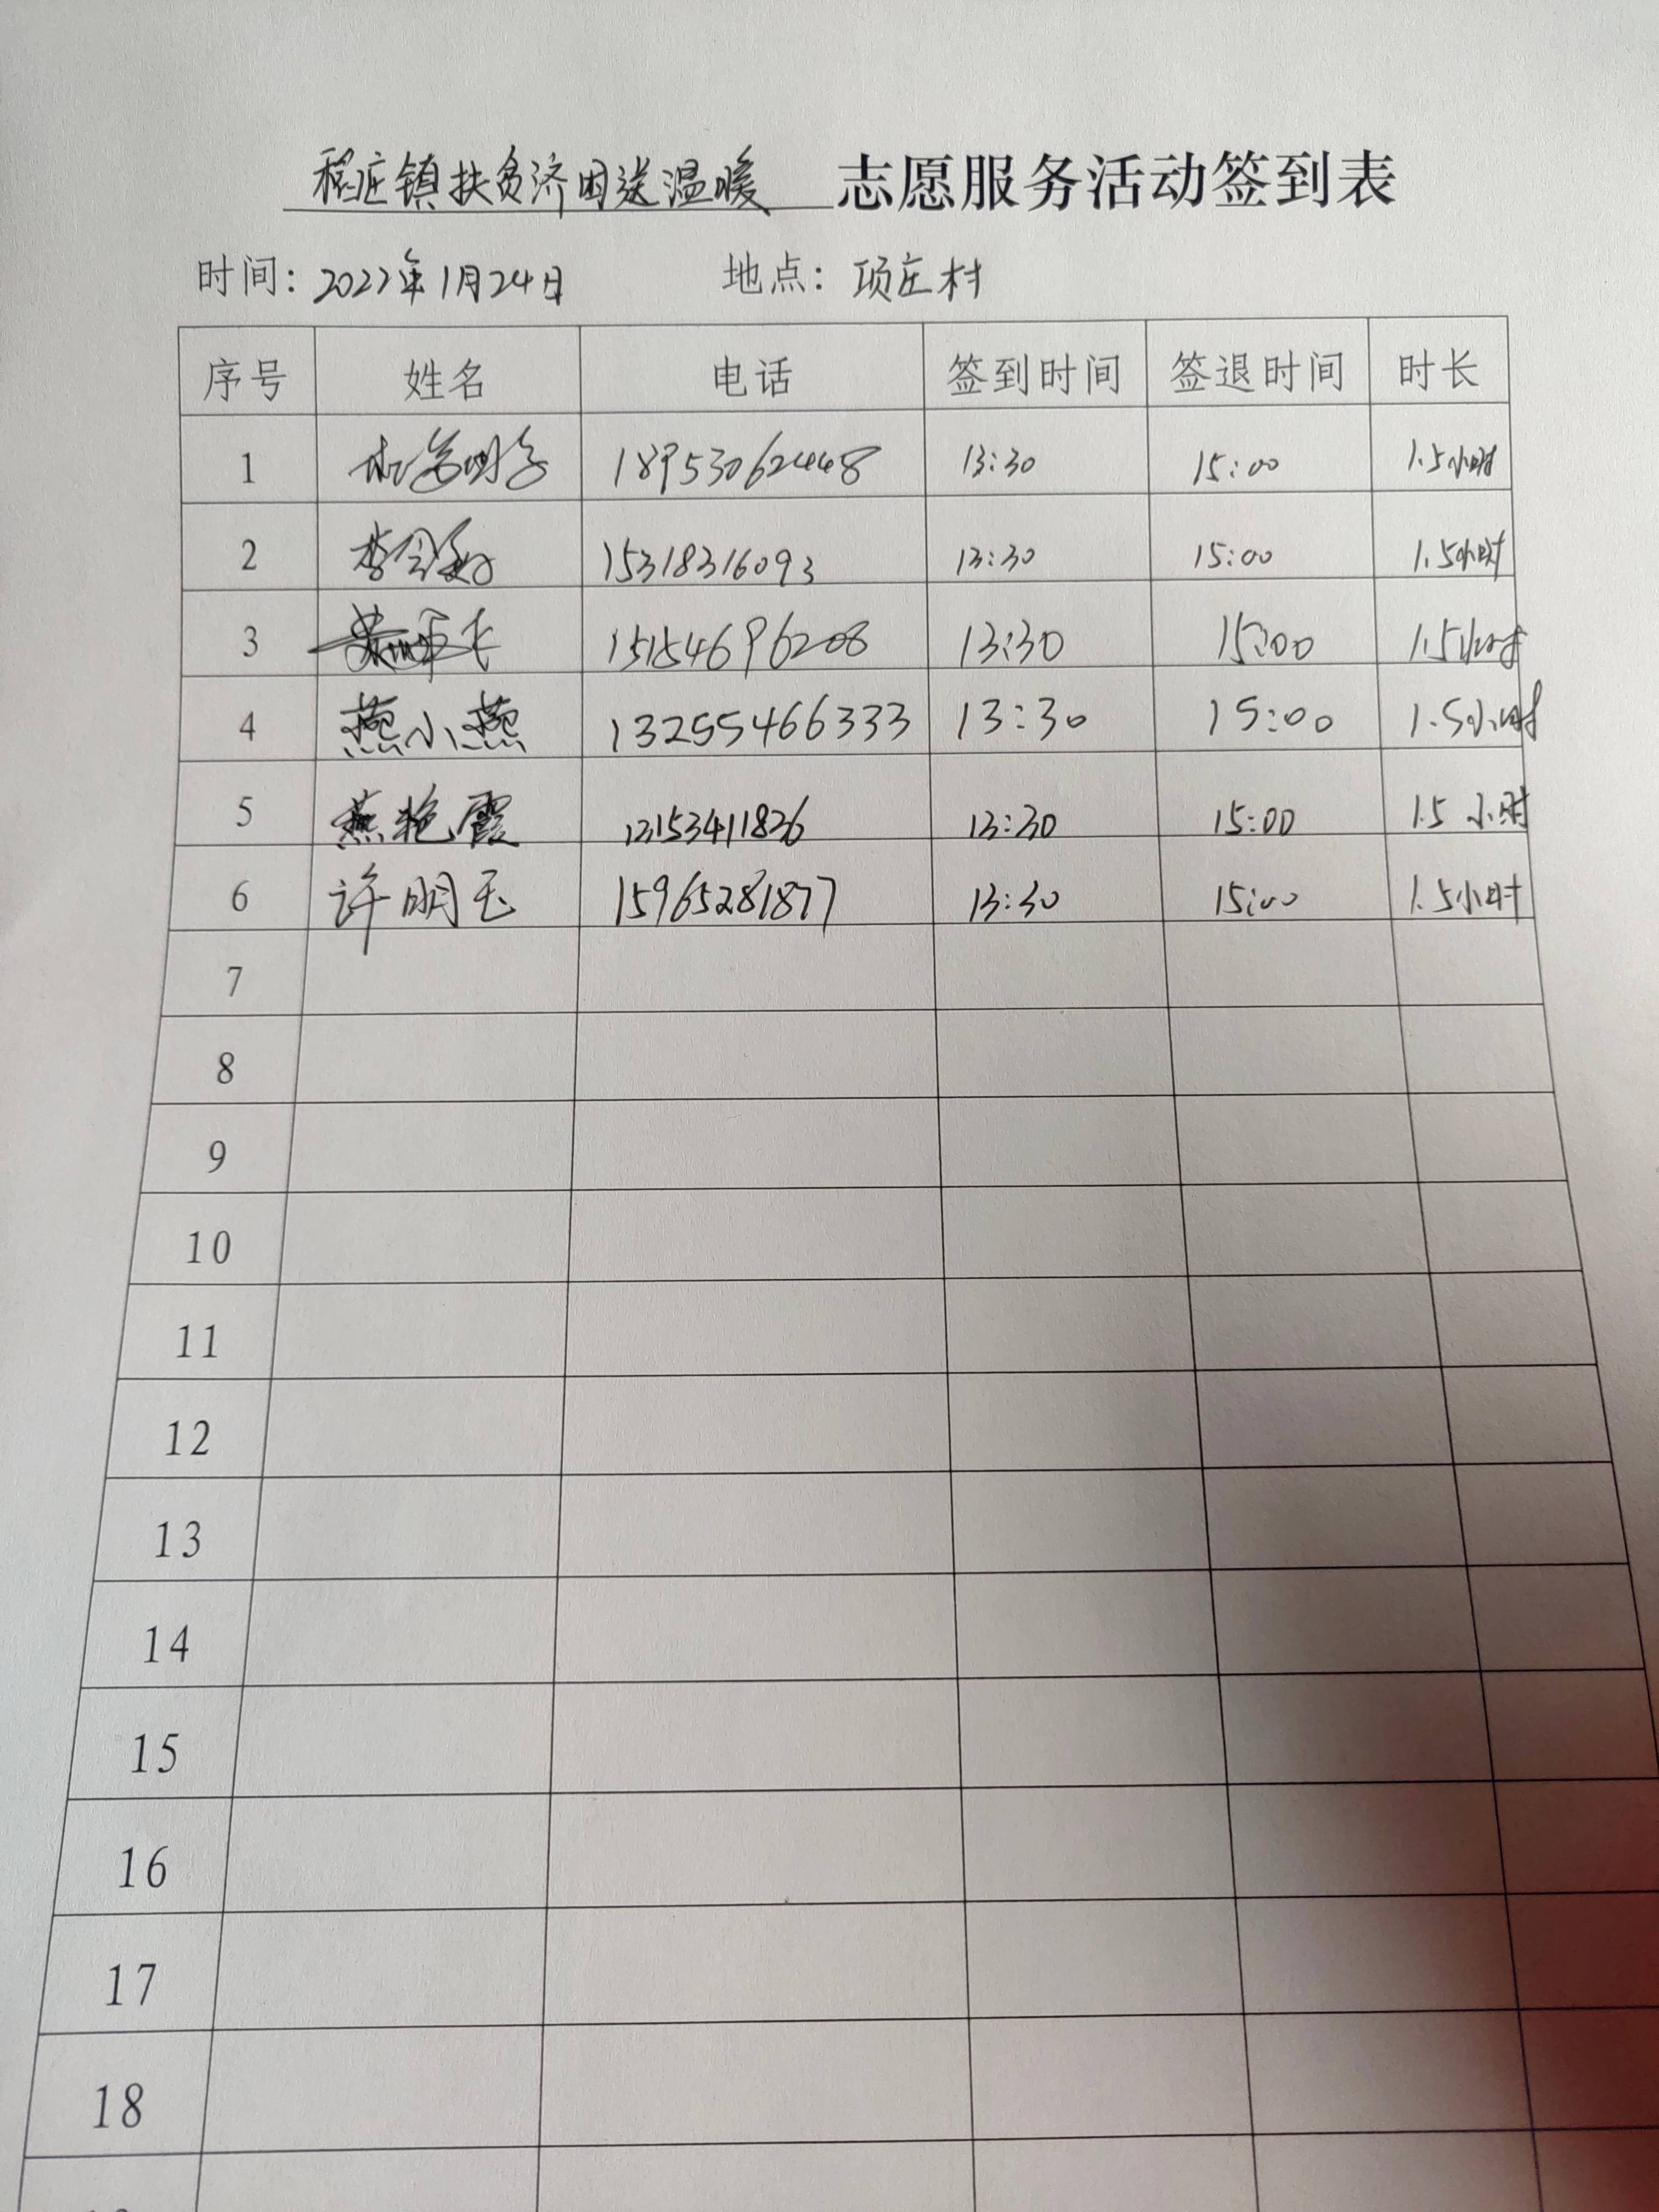 稻庄镇扶贫济困送温暖 志愿服务活动签到表
时间：2022年1月24日 地点：项庄村
序号 姓名 电话 签到时间 签退时间 时长
1 18953062448 13:30 15:00 1.5小时
2 15318316093 13:30 15:00 1.5小时
3 15154696208 13:30 15:00 1.5小时
4 燕小燕 13255466333 13:30 15:00 1.5小时
5 燕艳霞 13153411826 13:30 15:00 1.5小时
6 许明玉 15965281877 13:30 15:00 1.5小时
7
8
9
10
11
12
13
14
15
16
17
18